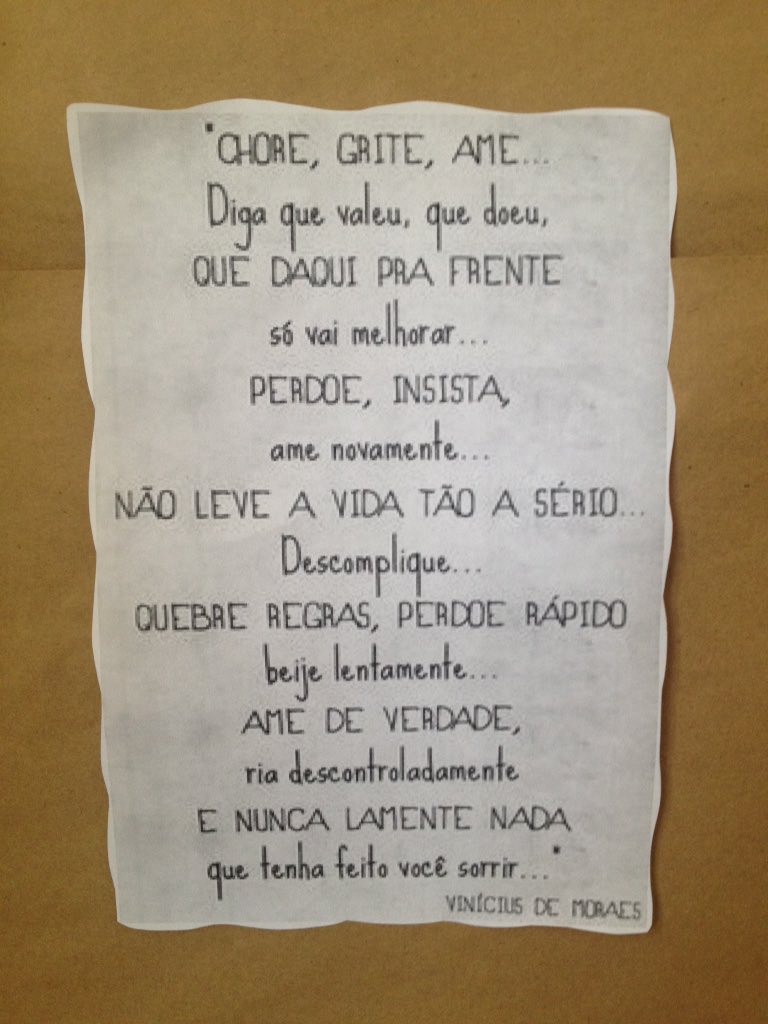 "CHORE, GRITE, AME...
Diga que valeu, que doeu,
QUE DAQUI PRA FRENTE
só vai melhorar...
PERDOE, INSISTA,
ame novamente...
NÃO LEVE A VIDA TÃO A SÉRIO...
Descomplique...
QUEBRE REGRAS, PERDOE RÁPIDO
beije lentamente...
AME DE VERDADE,
ria descontroladamente
E NUNCA LAMENTE NADA
que tenha feito você sorrir..."
VINÍCIUS DE MORAES